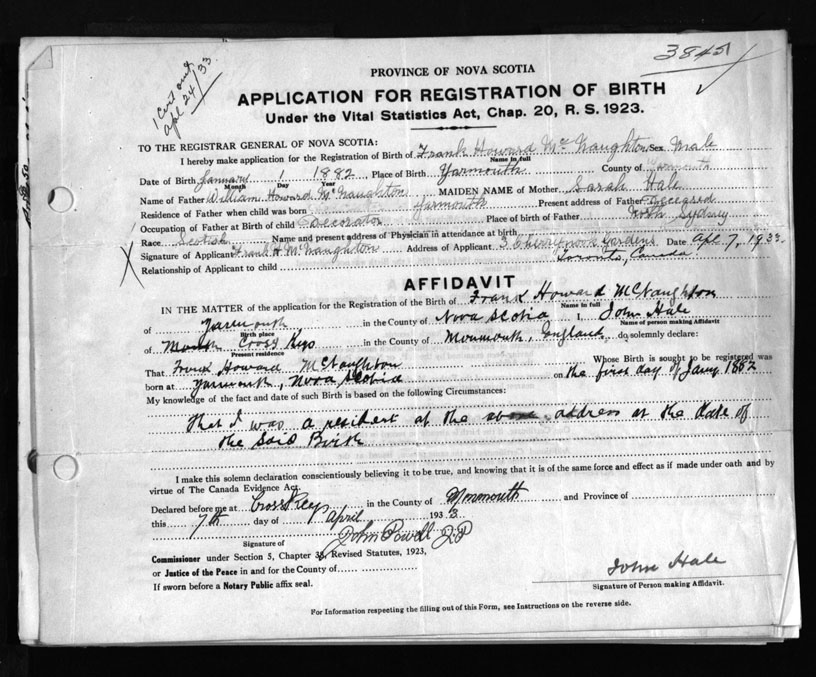 3845
1 Cert out
Apl 24/33
PROVINCE OF NOVA SCOTIA
APPLICATION FOR REGISTRATION OF BIRTH
Under the Vital Statistics Act, Chap. 20, R. S. 1923.
TO THE REGISTRAR GENERAL OF NOVA SCOTIA:
I hereby make application for the Registration of Birth of Frank Howard McNaughton Sex Male
Name in full
Date of Birth January 1 1882 Place of Birth Yarmouth County of Yarmouth
Month Day Year
Name of Father William Howard McNaughton MAIDEN NAME of Mother Sarah Hale
Residence of Father when child was born Yarmouth Present address of Father Deceased
Occupation of Father at Birth of child Decorator Place of birth of Father North Sydney
Race Scotish Name and present address of Physician in attendance at birth
Signature of Applicant Frank H McNaughton Address of Applicant 3 Cherrynook Gardens Date Apl 7, 1933
Relationship of Applicant to child Toronto, Canada
AFFIDAVIT
IN THE MATTER of the application for the Registration of the Birth of Frank Howard McNaughton
Name in full
of Yarmouth in the County of Nova Scotia I, John Hale
Birth place Name of person making Affidavit
of Cross Keys in the County of Monmouth, England, do solemnly declare:
Present residence
That Frank Howard McNaughton Whose Birth is sought to be registered was
born at Yarmouth, Nova Scotia on the first day of Jany 1882
My knowledge of the fact and date of such Birth is based on the following Circumstances:
That I was a resident at the above address at the date of
the said Birth
I make this solemn declaration conscientiously believing it to be true, and knowing that it is of the same force and effect as if made under oath and by
virtue of The Canada Evidence Act.
Declared before me at Cross Keys in the County of Monmouth and Province of
this 7th day of April 1933
Signature of John Powell JP
Commissioner under Section 5, Chapter 38, Revised Statutes, 1923,
or Justice of the Peace in and for the County of
If sworn before a Notary Public affix seal.
John Hale
Signature of Person making Affidavit.
For Information respecting the filling out of this Form, see Instructions on the reverse side.